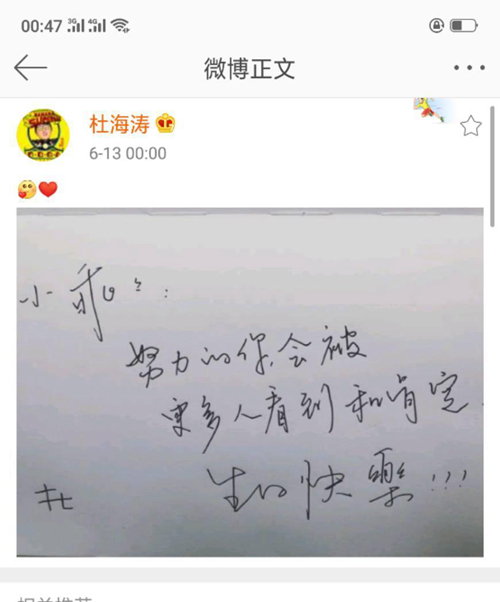 00:47
微博正文
杜海涛
6-13 00:00
小乖:
努力的你会被
更多人看到和肯定
生日快樂!!!
杜
相关推荐